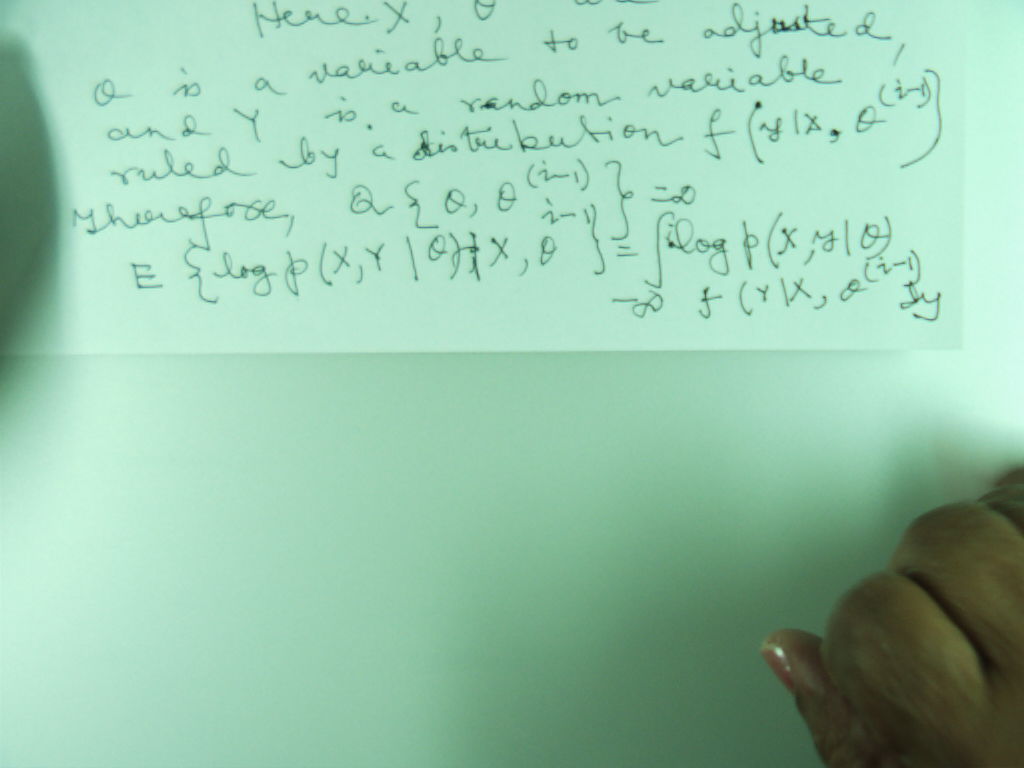 Here X, θ
θ is a variable to be adjusted,
and Y is a random variable
ruled by a distribution f (y|X, θ^(i-1))
Therefore, Q {θ, θ^(i-1)} =
E {log p (X, Y | θ) | X, θ^(i-1)} = ∫ log p (X, y | θ)
-∞ f (Y|X, θ^(i-1)) dy